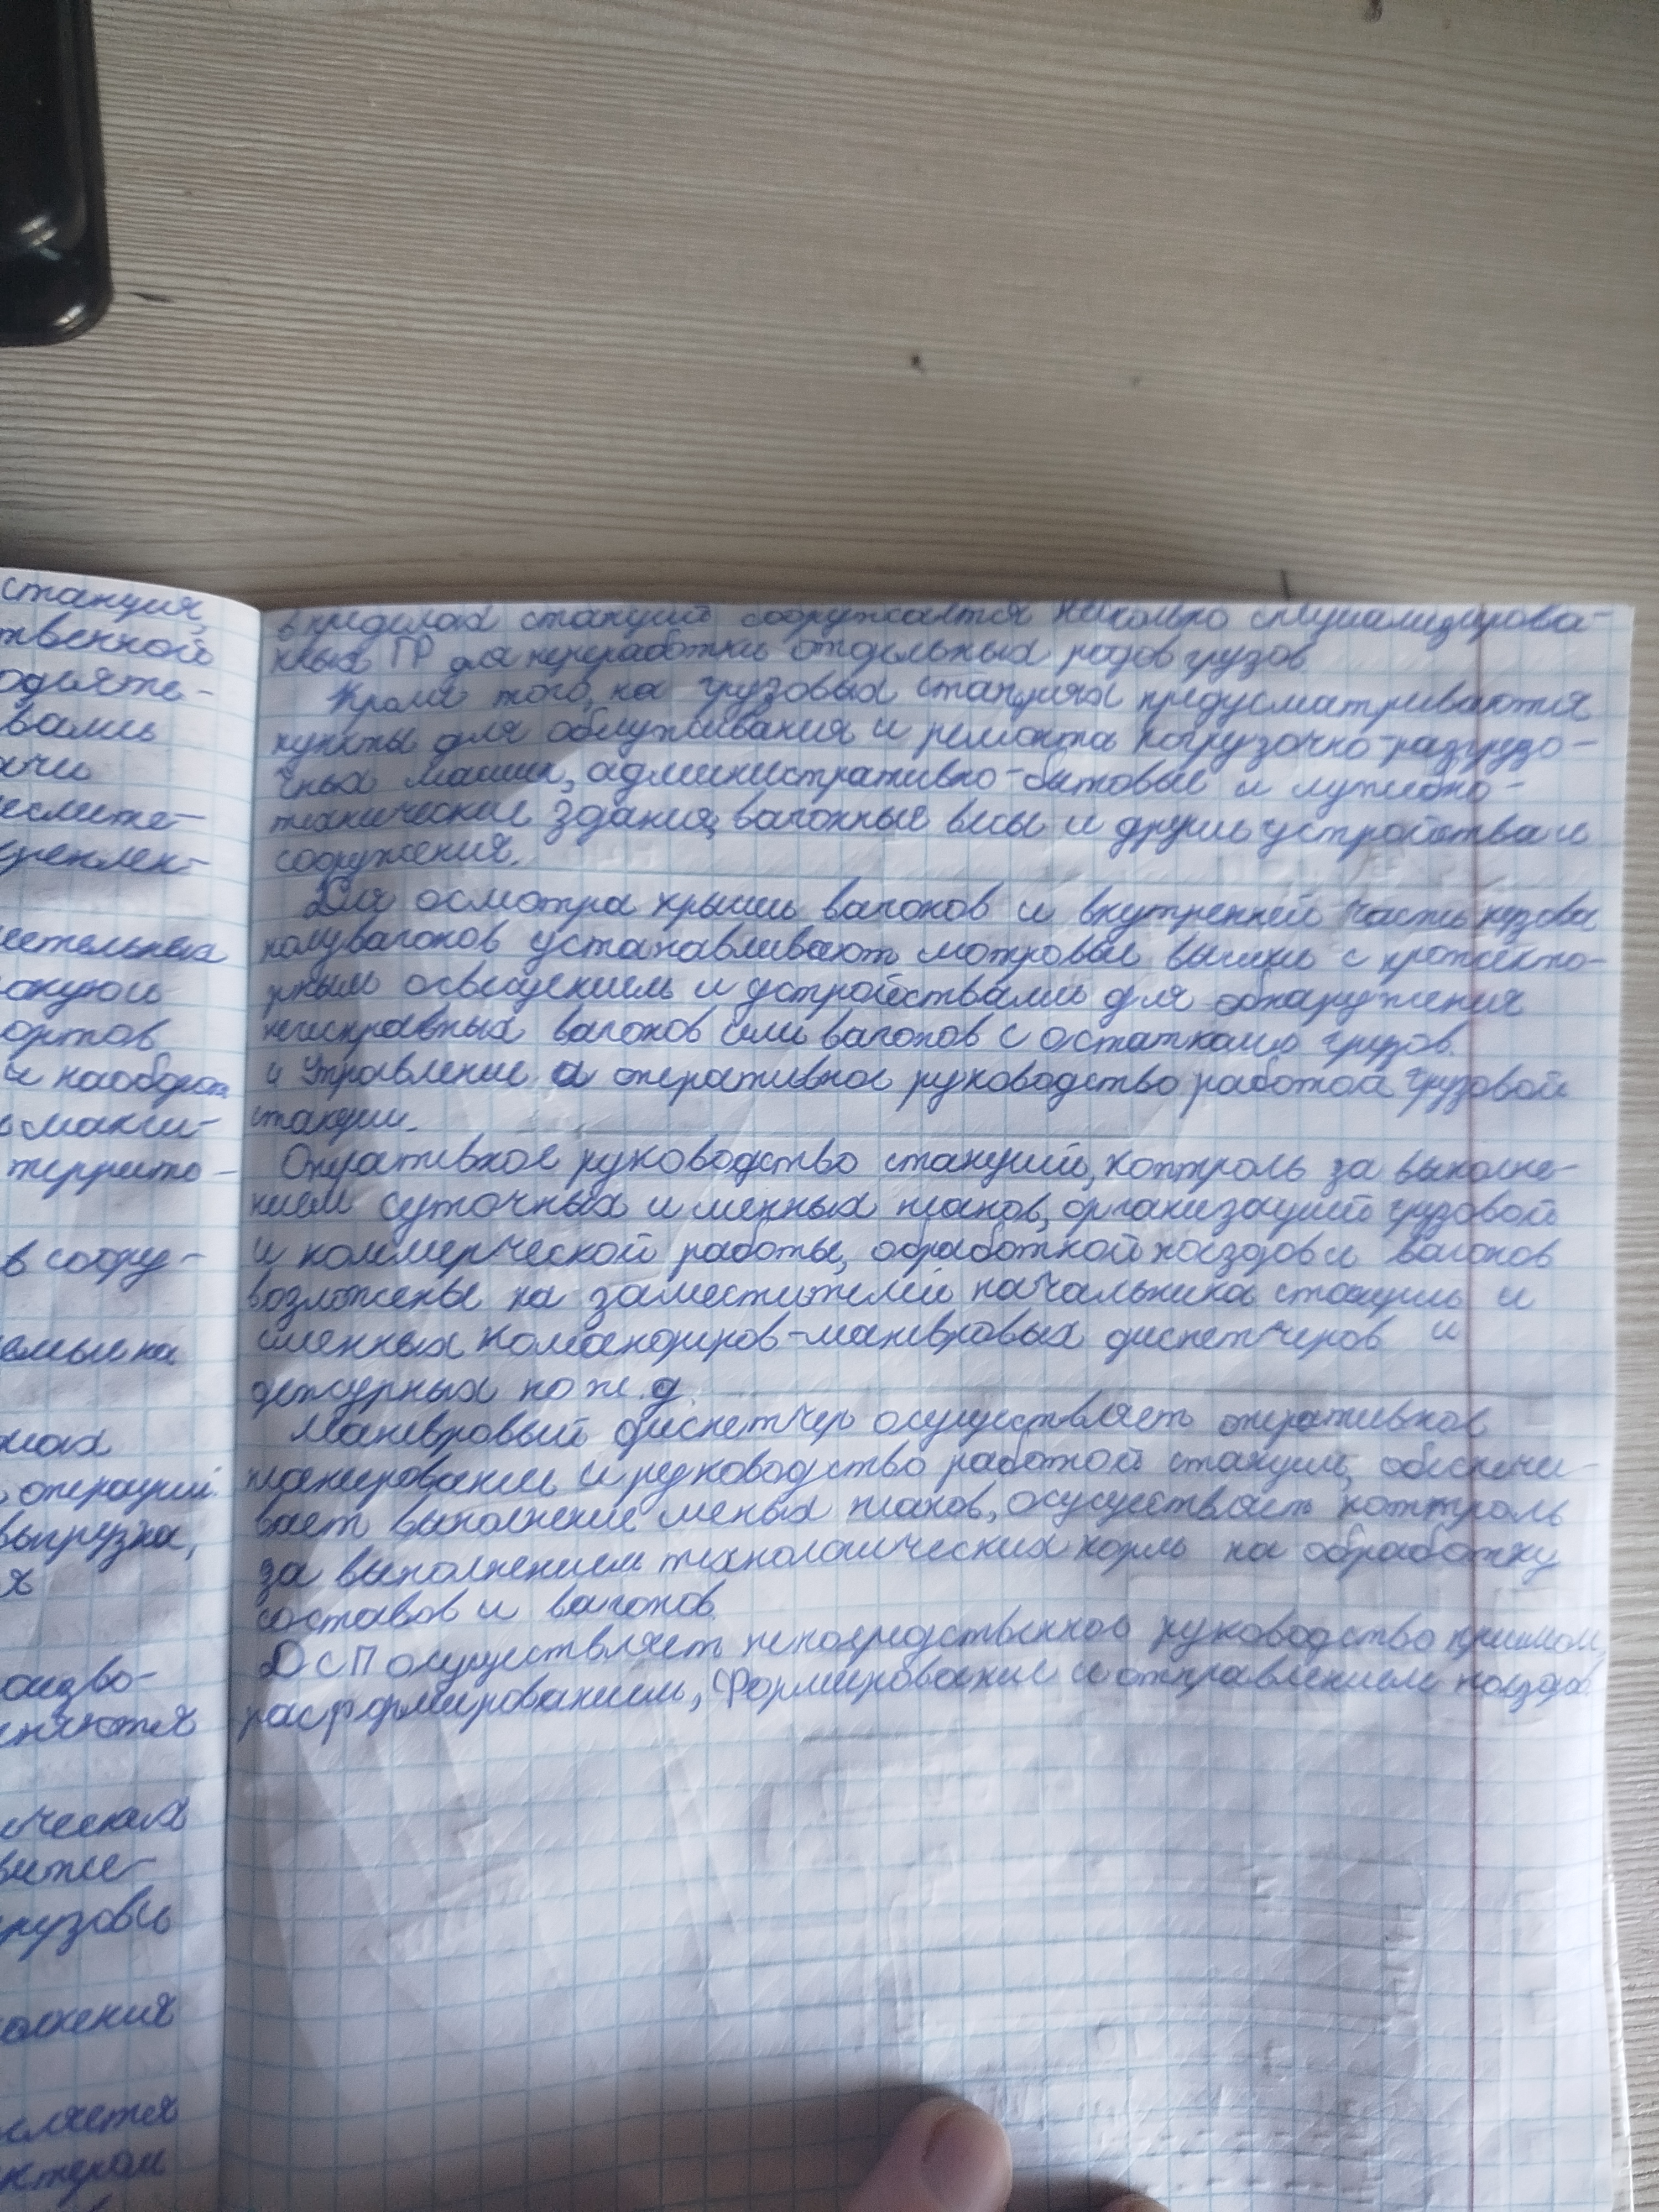 станция,
твенной
одъяте-
вами
ачи
еслите-
цеплен-
ортов
и наоборот
террито-
в соору-
операций.
выгрузка,
оизво-
ических
грузовы
в пределах станций сооружается несколько специализирова-
нных ГР для переработки отдельных родов грузов.
Кроме того, на грузовых станциях предусматриваются
пункты для обслуживания и ремонта погрузочно-разгрузо-
чных машин, административно-бытовые и служебно-
технические здания, вагонные весы и другие устройства и
сооружения.
Для осмотра крыши вагонов и внутренней части кузова
полувагонов устанавливают смотровые вышки с прожекто-
рным освещением и устройствами для обнаружения
неисправных вагонов или вагонов с остатками грузов.
4 Управление и оперативное руководство работой грузовой
станции.
Оперативное руководство станций, контроль за выполне-
нием суточных и сменных планов, организаций грузовой
и коммерческой работы, обработкой поездов и вагонов
возложены на заместителей начальника станции и
сменных командиров-маневровых диспетчеров и
дежурных по ж.д.
Маневровый диспетчер осуществляет оперативное
планирование и руководство работой станции, обеспечи-
вает выполнение сменых планов, осуществляет контроль
за выполнением технологических норм на обработку
составов и вагонов.
ДСП осуществляет непосредственное руководство приемом,
расформированием, формирование и отправлением поездов.